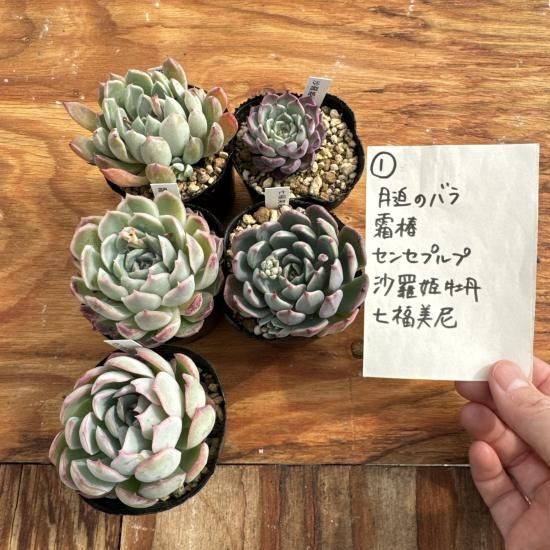 ①
月迫のバラ
霜椿
センセプルプ
沙羅姫牡丹
七福美尼